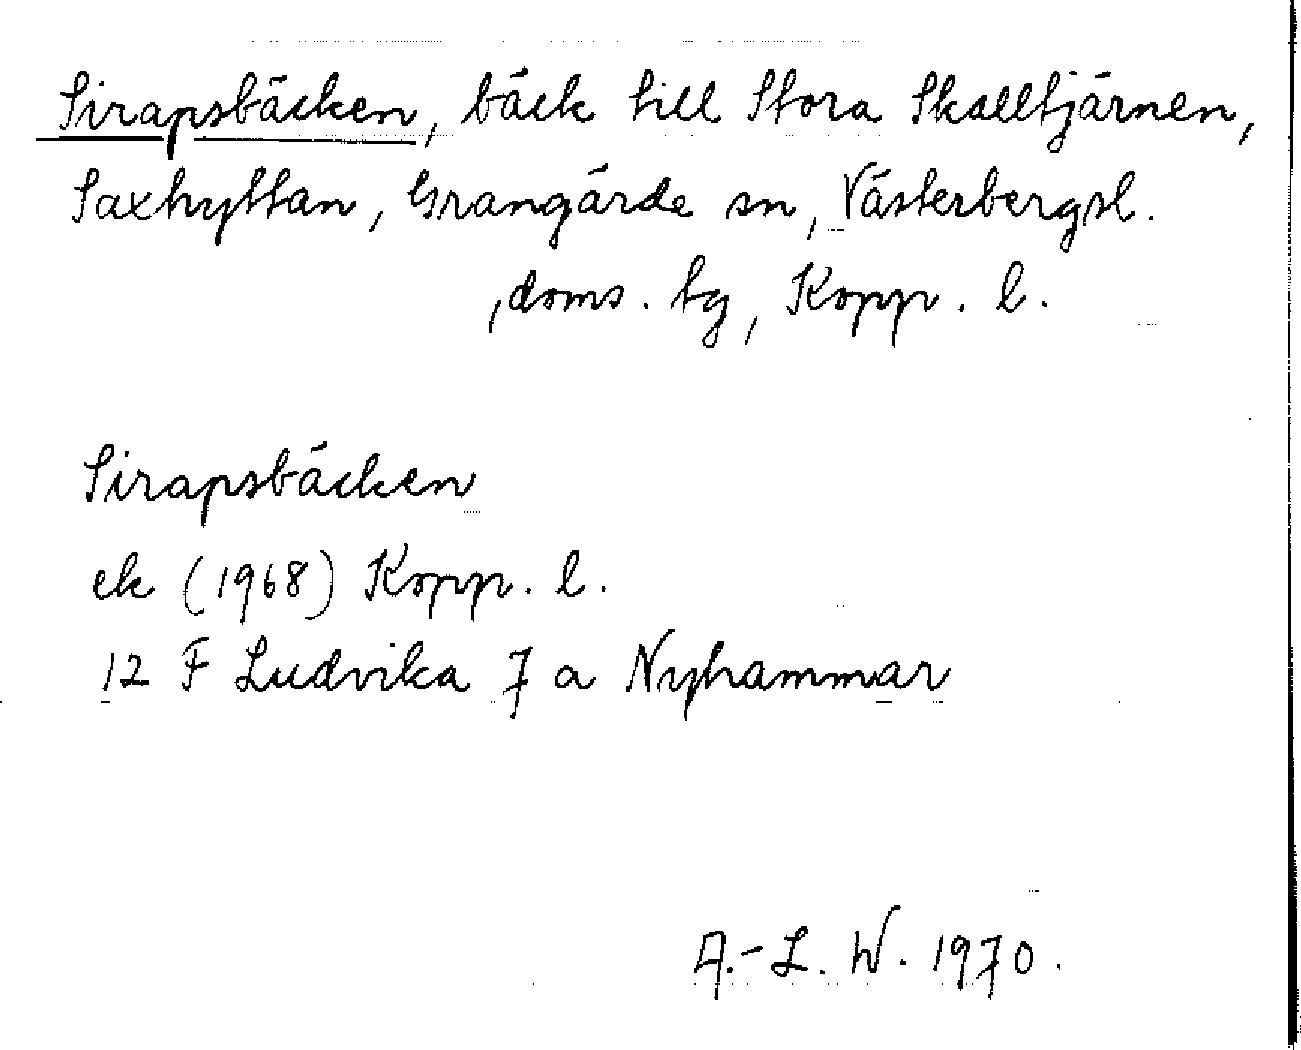 Sirapsbäcken, bäck till Stora Skalltjärnen,
Saxhyttan, Grangärde sn, Västerbergsl.
, doms. tg, Kopp. l.
Sirapsbäcken
ek (1968) Kopp. l.
12 F Ludvika 7 a Nyhammar
A.-L. W. 1970.